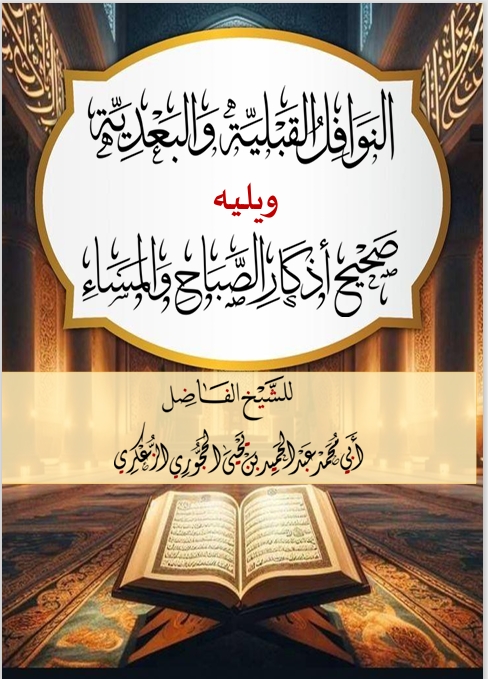 النَوَافِلُ القَبْلِيَّة وَالبَعْدِيَّة
ويليه
صَحِيْح أَذكَارِ الصَّبَاح وَالمَسَاءِ
للشَّيْخ الفَاضِل
أَبِي مُحَمَّد عَبْد الحَمِيد بن يَحْيَى الحَجُورِي الزُّعْكُرِي